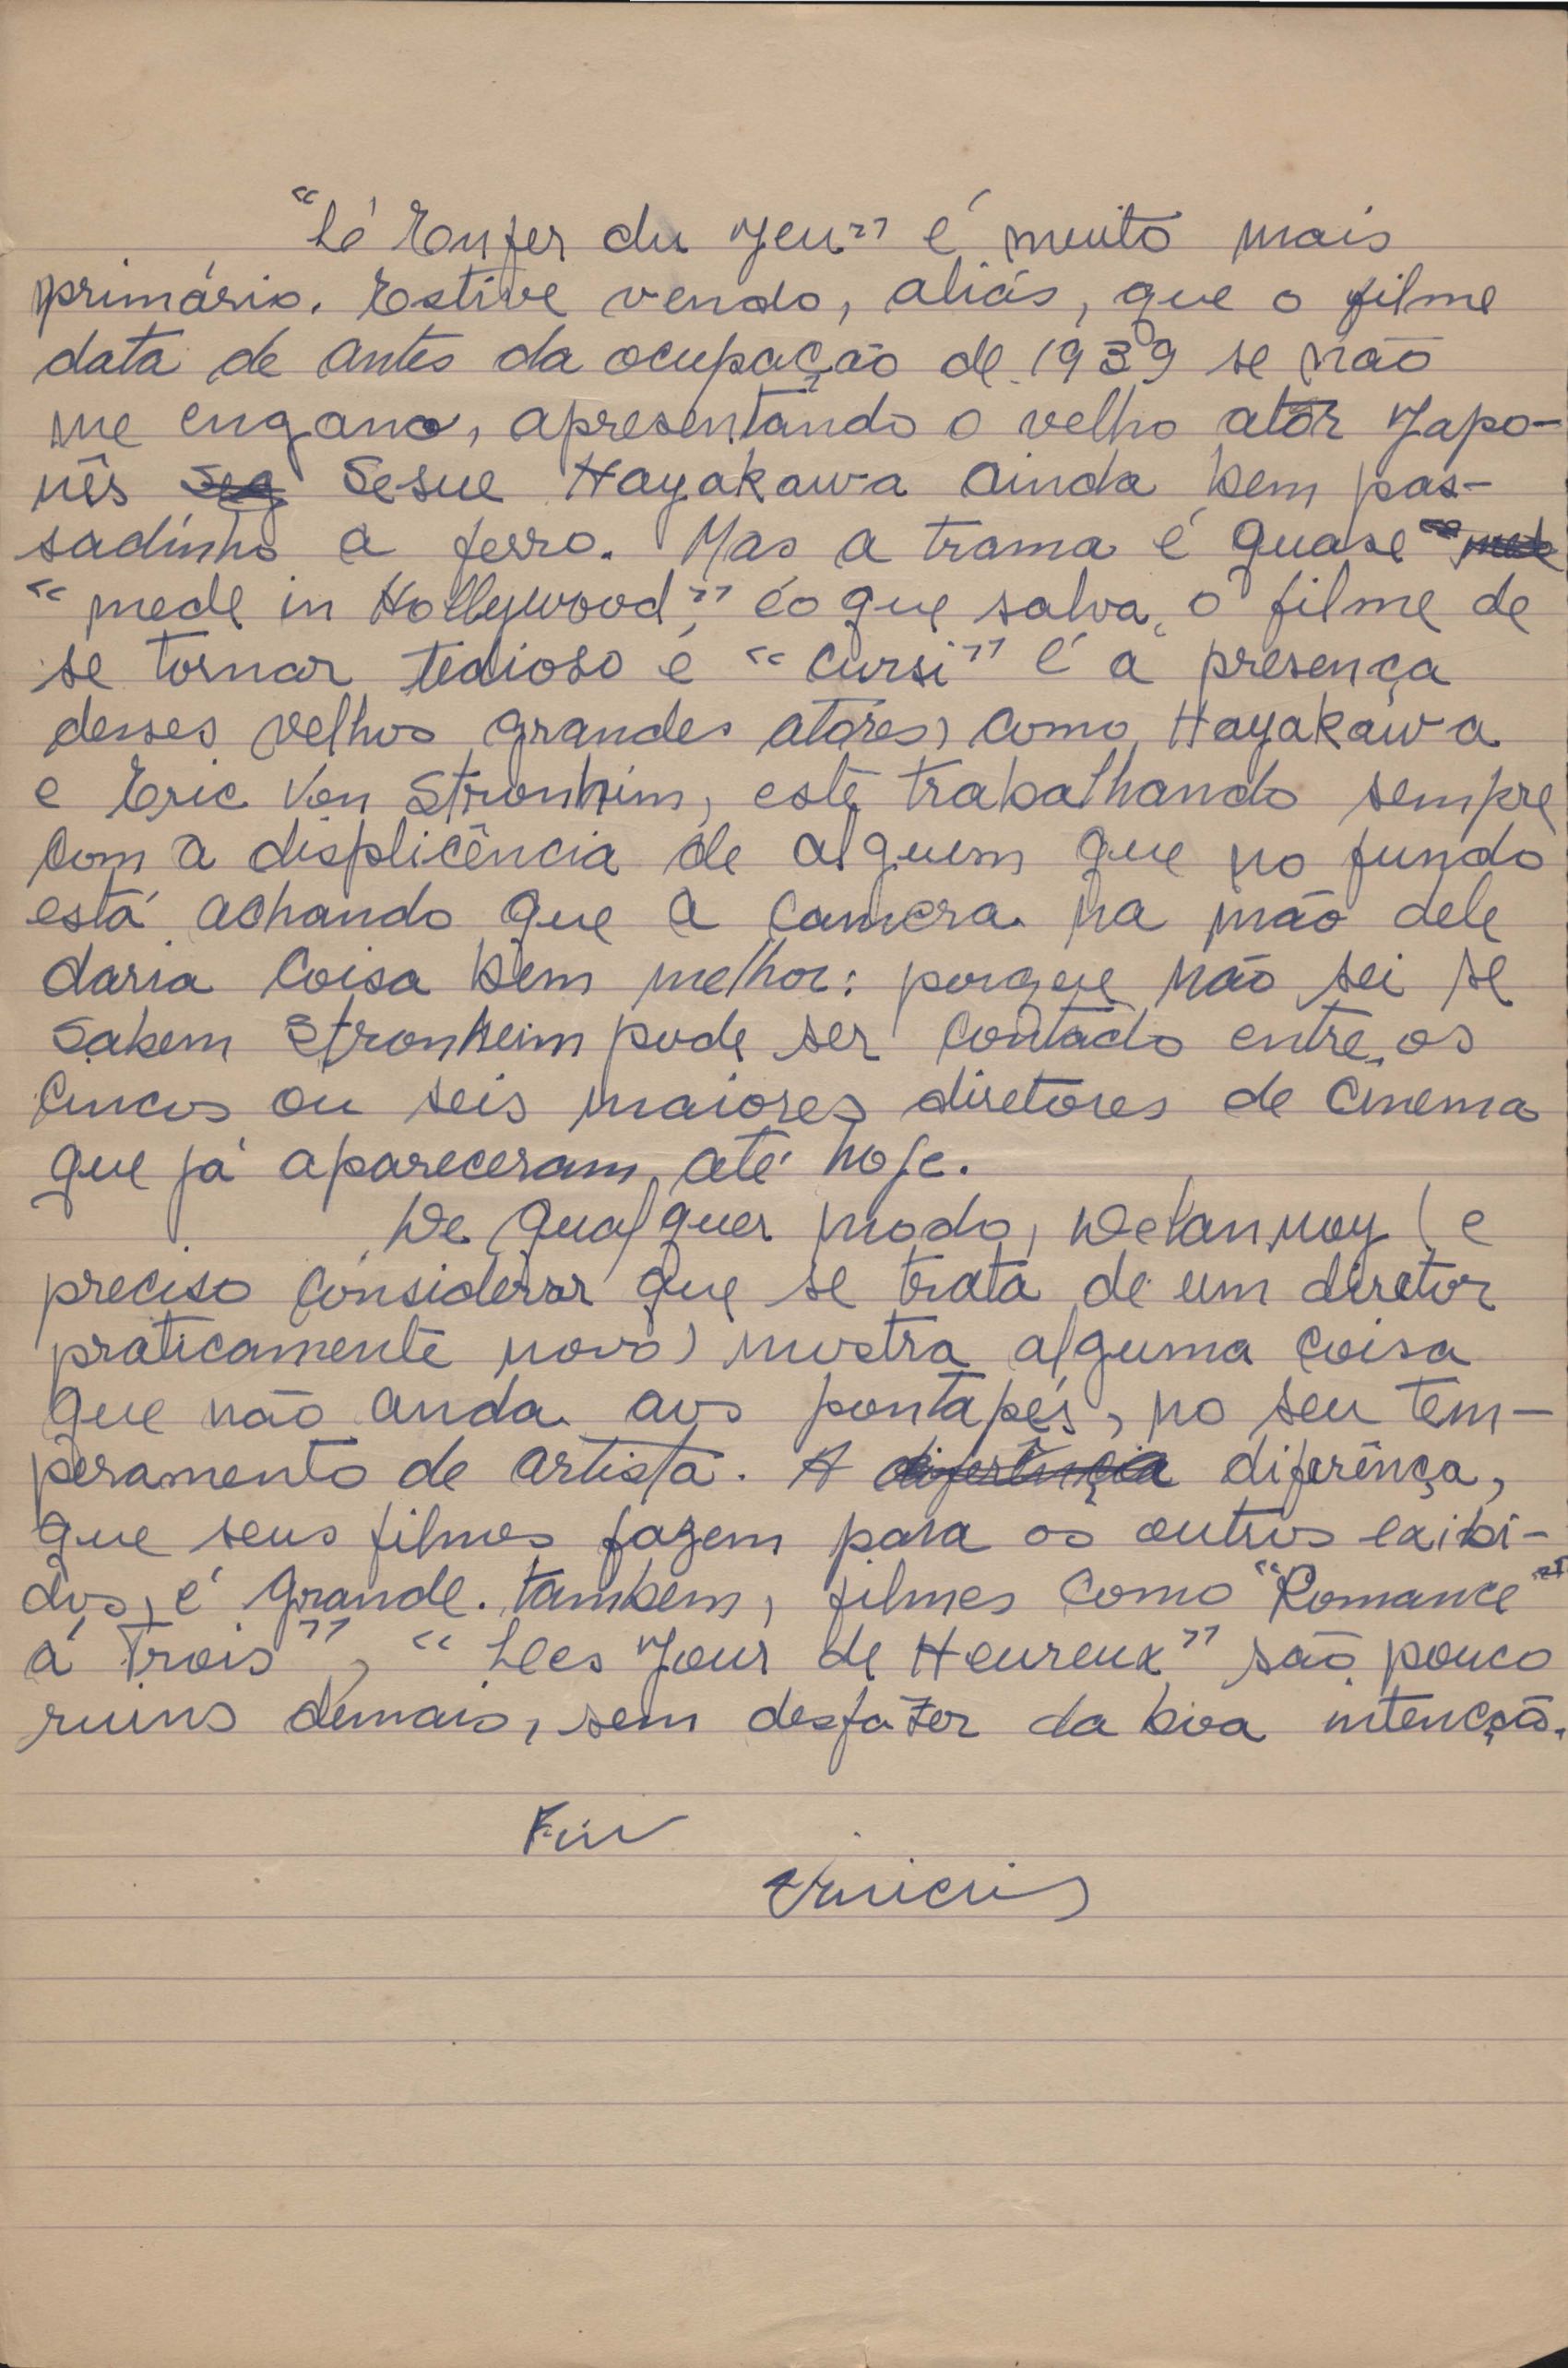 "Lé Enfer du Jeu" é muito mais
primário. Estive vendo, aliás, que o filme
data de antes da ocupação de 1939 se não
me engano, apresentando o velho ator Japo-
nês Seg Sesue Hayakawa ainda bem pas-
sadinho a ferro. Mas a trama é quase "mede
"mede in Hollywood", é o que salva o filme de
se tornar tedioso e "cursi" é a presença
desses velhos grandes atores, como Hayakawa
e Eric Von Stronhim, este trabalhando sempre
com a displicência de alguem que no fundo
está achando que a camera na mão dele
daria coisa bem melhor: porque não sei se
sabem Stronheim pode ser contado entre os
cincos ou seis maiores diretores de cinema
que já apareceram até hoje.
De qualquer modo, Delannoy (e
preciso considerar que se trata de um diretor
praticamente novo) mostra alguma coisa
que não anda aos pontapés, no seu tem-
peramento de artista. A diferênçia diferênça,
que seus filmes fazem para os outros exibi-
dos, é grande. Tambem, filmes como "Romance"
á Trois", "Lles Jour de Heureux" são pouco
ruins demais, sem desfazer da boa intenção.
Fim
Vinicius